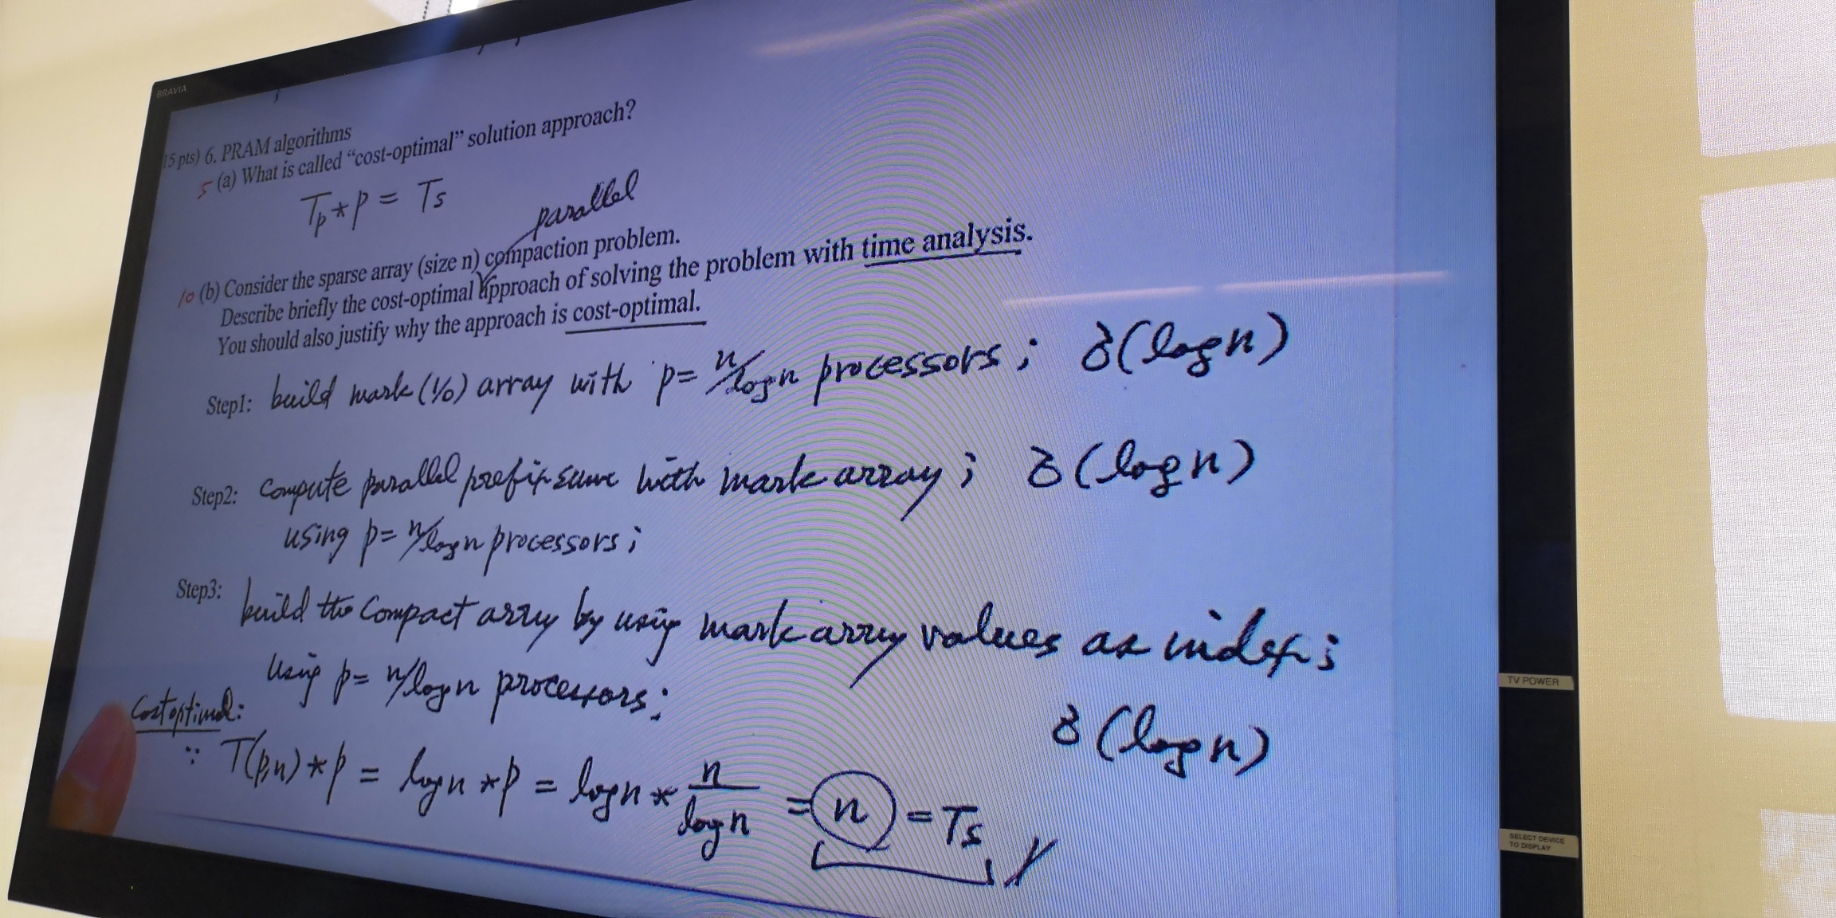 BRAVIA
15 pts) 6. PRAM algorithms
5 (a) What is called “cost-optimal” solution approach?
Tp * p = Ts
parallel
10 (b) Consider the sparse array (size n) compaction problem.
Describe briefly the cost-optimal approach of solving the problem with time analysis.
You should also justify why the approach is cost-optimal.
Step1: build mark (1/0) array with p= n/logn processors; O(logn)
Step2: Compute parallel prefix sum with mark array; O(logn)
using p= n/logn processors;
Step3: build the compact array by using mark array values as index;
using p= n/logn processors;
O(logn)
Cost optimal:
∵ T(p,n) * p = logn * p = logn * n/logn = n = Ts
TV POWER
SELECT DEVICE
TO DISPLAY